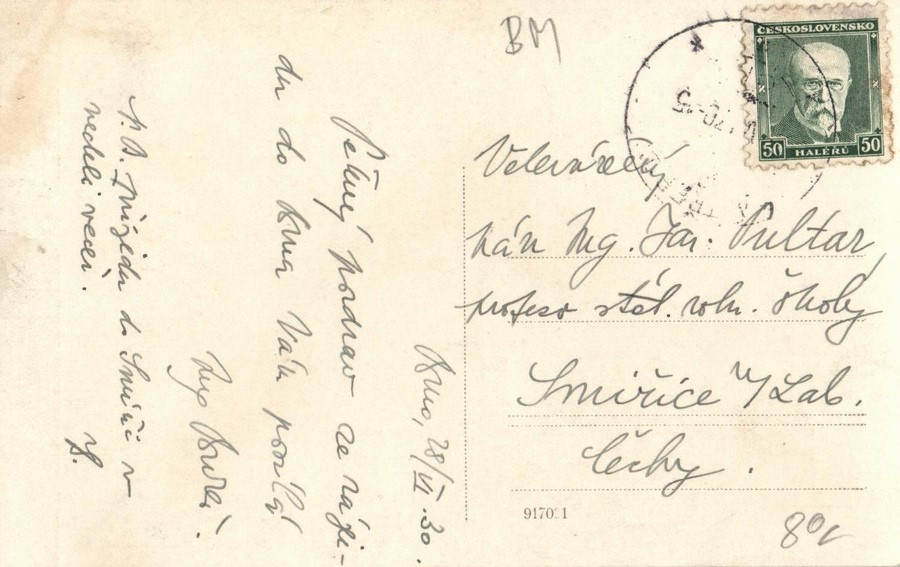 BM
ČESKOSLOVENSKO
50 HALÉŘŮ 50
Velevážený
pán Ing. Jar. Pultar
profesor stát. roln. školy
Smiřice n/Lab.
Čechy.
917031
80
Brno, 28/VI.30.
Pěkný pozdrav ze zájez-
du do Brna Vám posílá
N.B. Přijedu do Smiřic v
neděli večer.